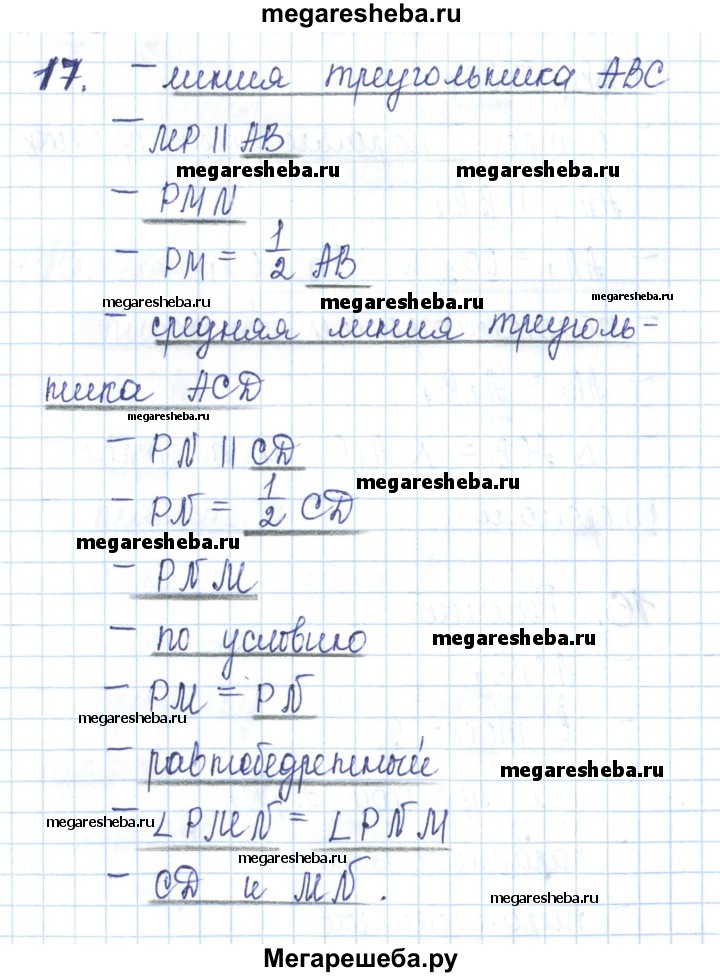 megaresheba.ru
17. – линия треугольника ABC
– MP || AB
megaresheba.ru megaresheba.ru
– PMN
– PM = 1/2 AB
megaresheba.ru megaresheba.ru megaresheba.ru
– средняя линия треуголь-
ника ACD
megaresheba.ru
– PN || CD
megaresheba.ru
– PN = 1/2 CD
megaresheba.ru
– PNM
– по условию megaresheba.ru
– PM = PN
megaresheba.ru
– равнобедренный
megaresheba.ru
megaresheba.ru
– ∠PMN = ∠PNM
megaresheba.ru
– CD и MN.
megaresheba.ru
Мегарешеба.ру